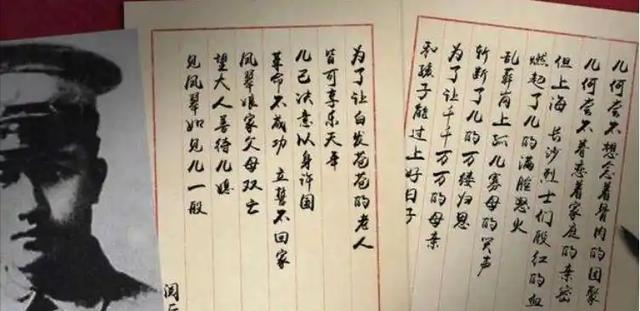 儿何尝不想念着骨肉的团聚
儿何尝不眷恋着家庭的亲密
但上海 长沙烈士们殷红的血
燃起了儿的满腔怒火
乱葬岗上孤儿寡母的哭声
斩断了儿的万缕归思
为了让千千万万的母亲
和孩子能过上好日子
为了让白发苍苍的老人
皆可享乐天年
儿已决意以身许国
革命不成功 立誓不回家
凤翠娘家父母双亡
望大人善待儿媳
见凤翠如见儿一般